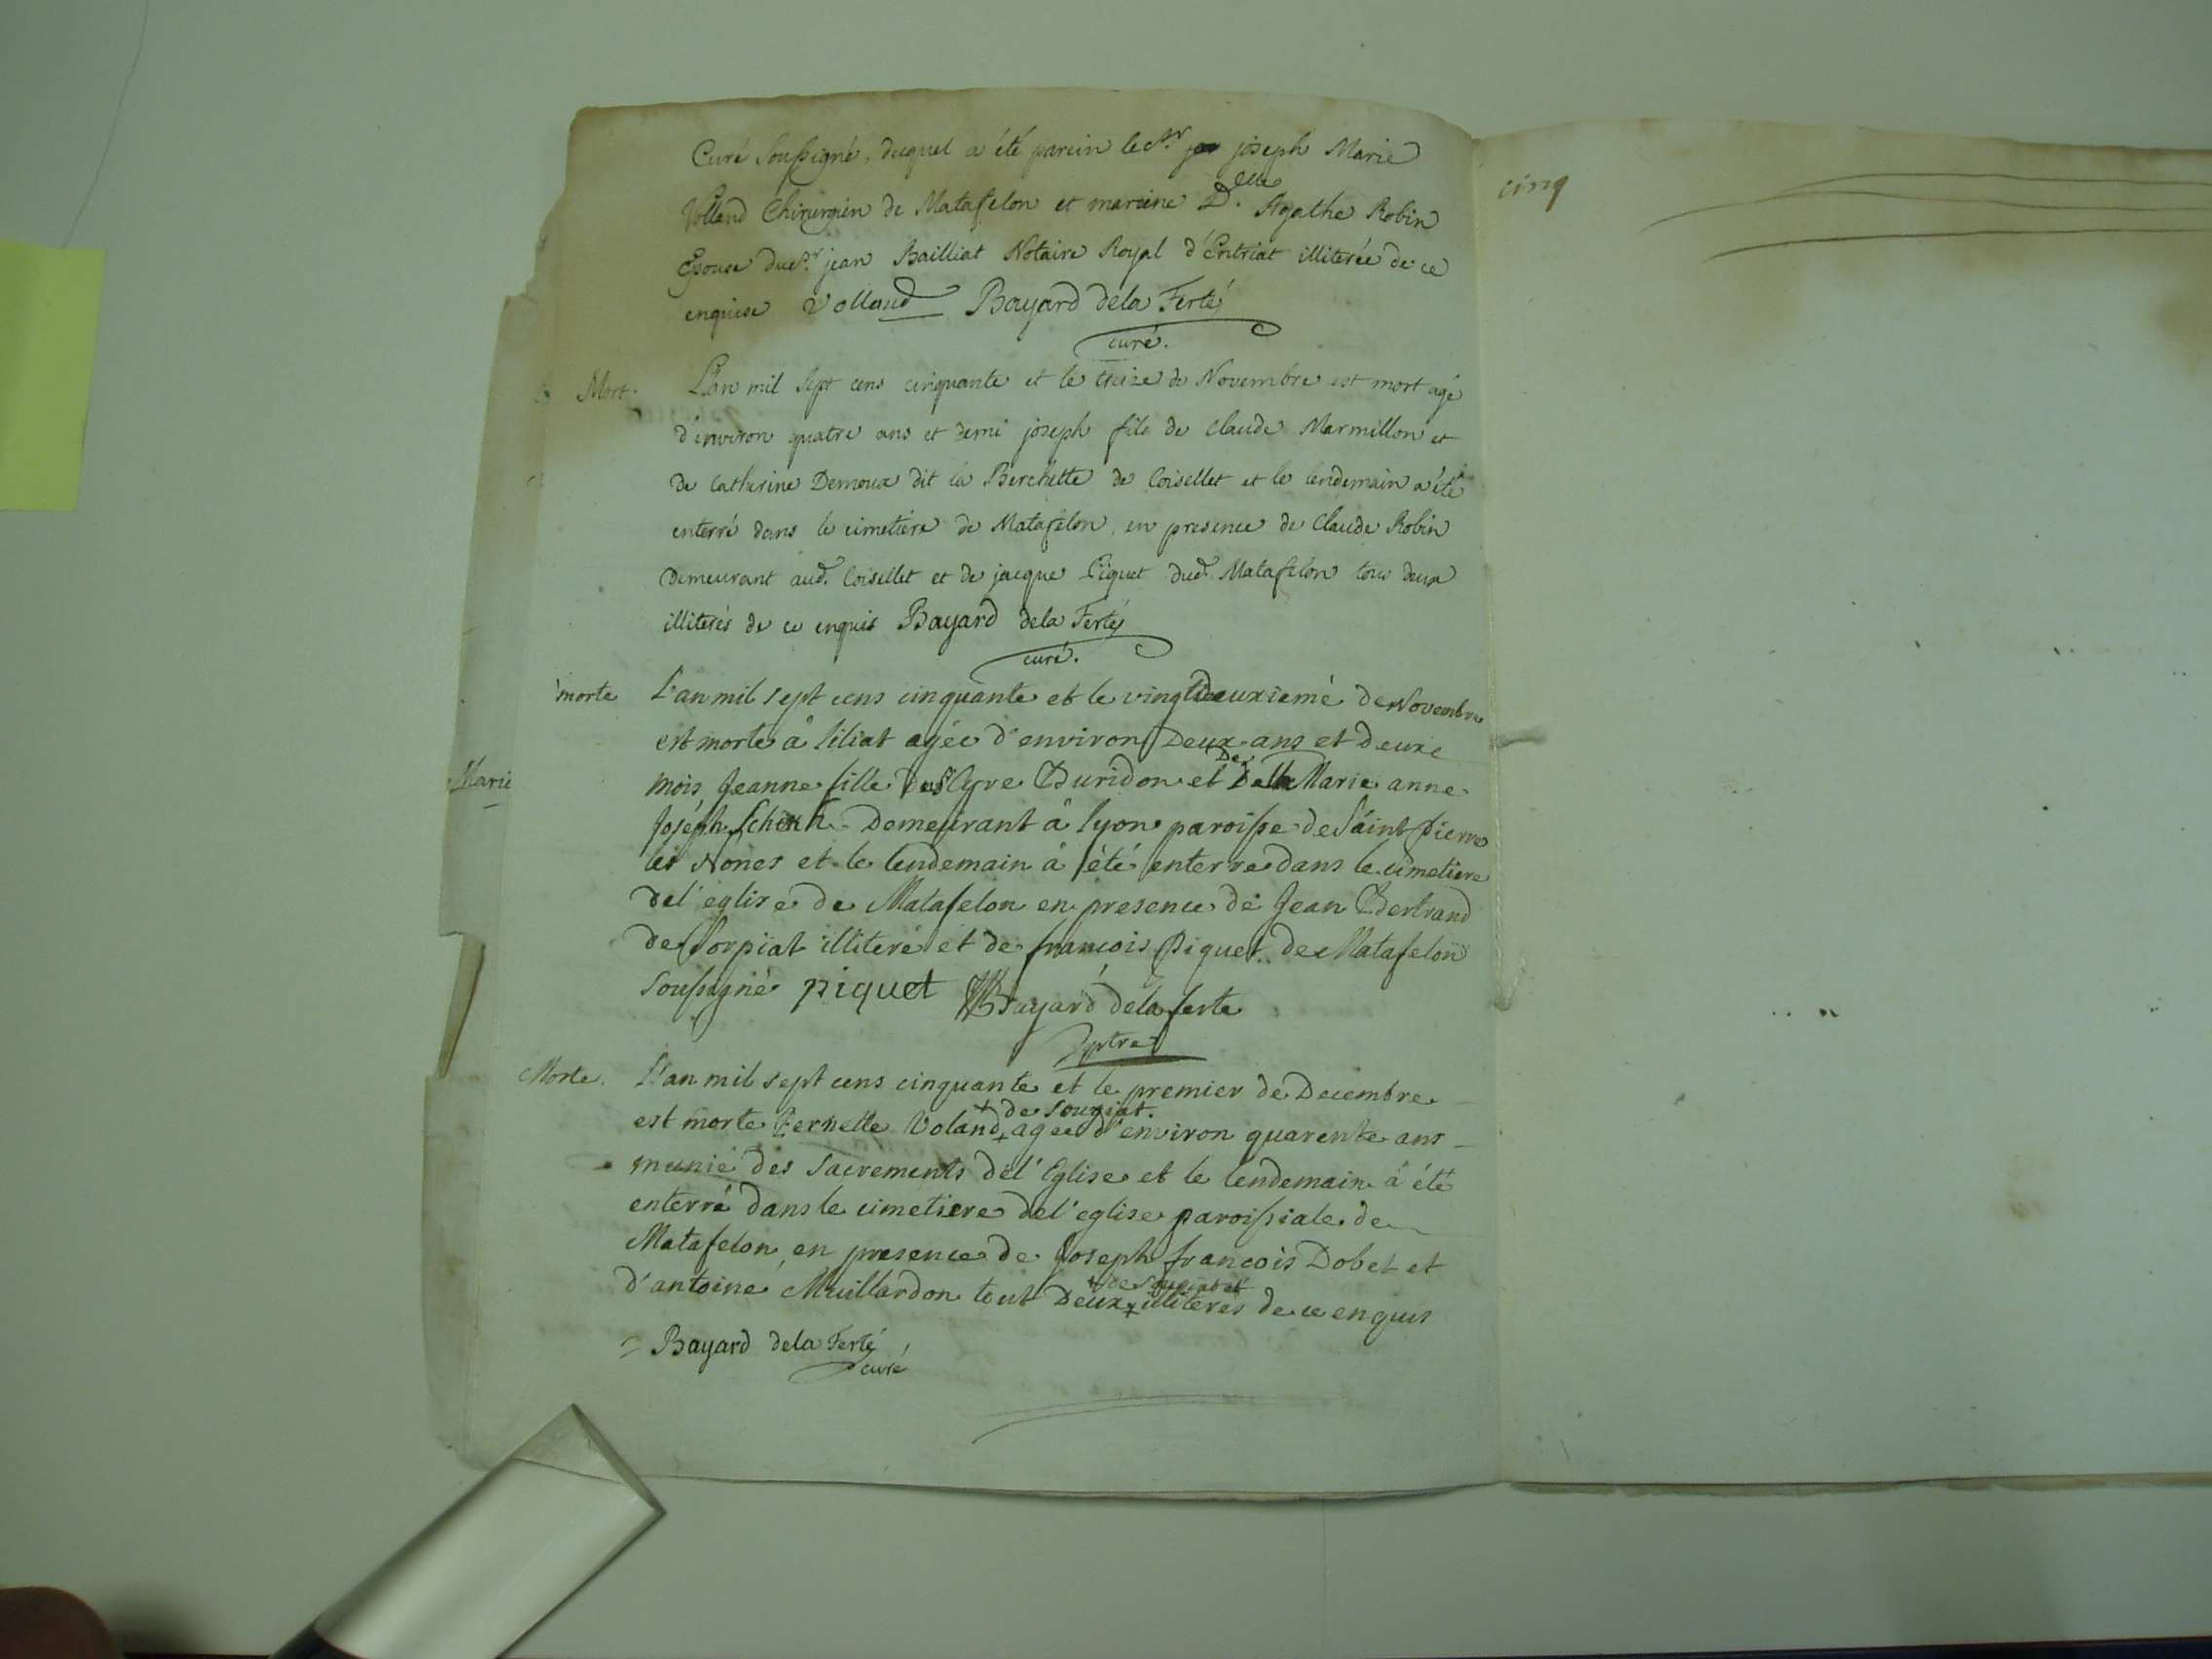 Curé Soussigné, duquel a été parein le Sr. joseph Marie
Volland Chirurgien de Matafelon et mareine D.elle Agathe Robin
Epouse du Sr. jean Bailliat Notaire Royal d'Entriat illiterée de ce
enquise Volland Bayard dela Ferté
curé.
Mort. L'an mil sept cens cinquante et le treize de Novembre est mort agé
d'environ quatre ans et demi joseph fils de Claude Marmillon et
de Catherine Demoux dit la Berchette de Coisellet et le lendemain a été
enterré dans le cimetiére de Matafelon, en presence de Claude Robin
Demeurant aud. Coisellet et de jacque Piquet dud. Matafelon tous deux
illiterés de ce enquis Bayard dela Ferté
curé.
morte L'an mil sept cens cinquante et le vingtdeuxiemé de Novembre
est morte â Siliat agée d'environ Deux ans et deuxe
Marie
mois Jeanne fille du Sr yve Buridon et De Marie anne
Joséph Demeurant â lyon paroisse de Saint pierre
les Nones et le lendemain â été enterre dans le cimetiere
del'eglise de Matafelon en presence de Jean Bertrand
de Corpiat illiteré et de francois Piquet de Matafelon
Soussigné piquet Bayard dela ferte
ptre
Morte. L'an mil sept cens cinquante et le premier de Decembre
+ de Sougiat.
est morte Pernette Voland + agee d'environ quarente ans
munie des Sacrements del'Eglise et le lendemain â été
enterré dans le cimetiere del'eglise paroissiale de
Matafelon en presence de Joseph francois Dobet et
+ de Sougiat et
d'antoine Muillardon tout Deux + illiterés de ce enquis
Bayard dela Ferté
curé
cinq